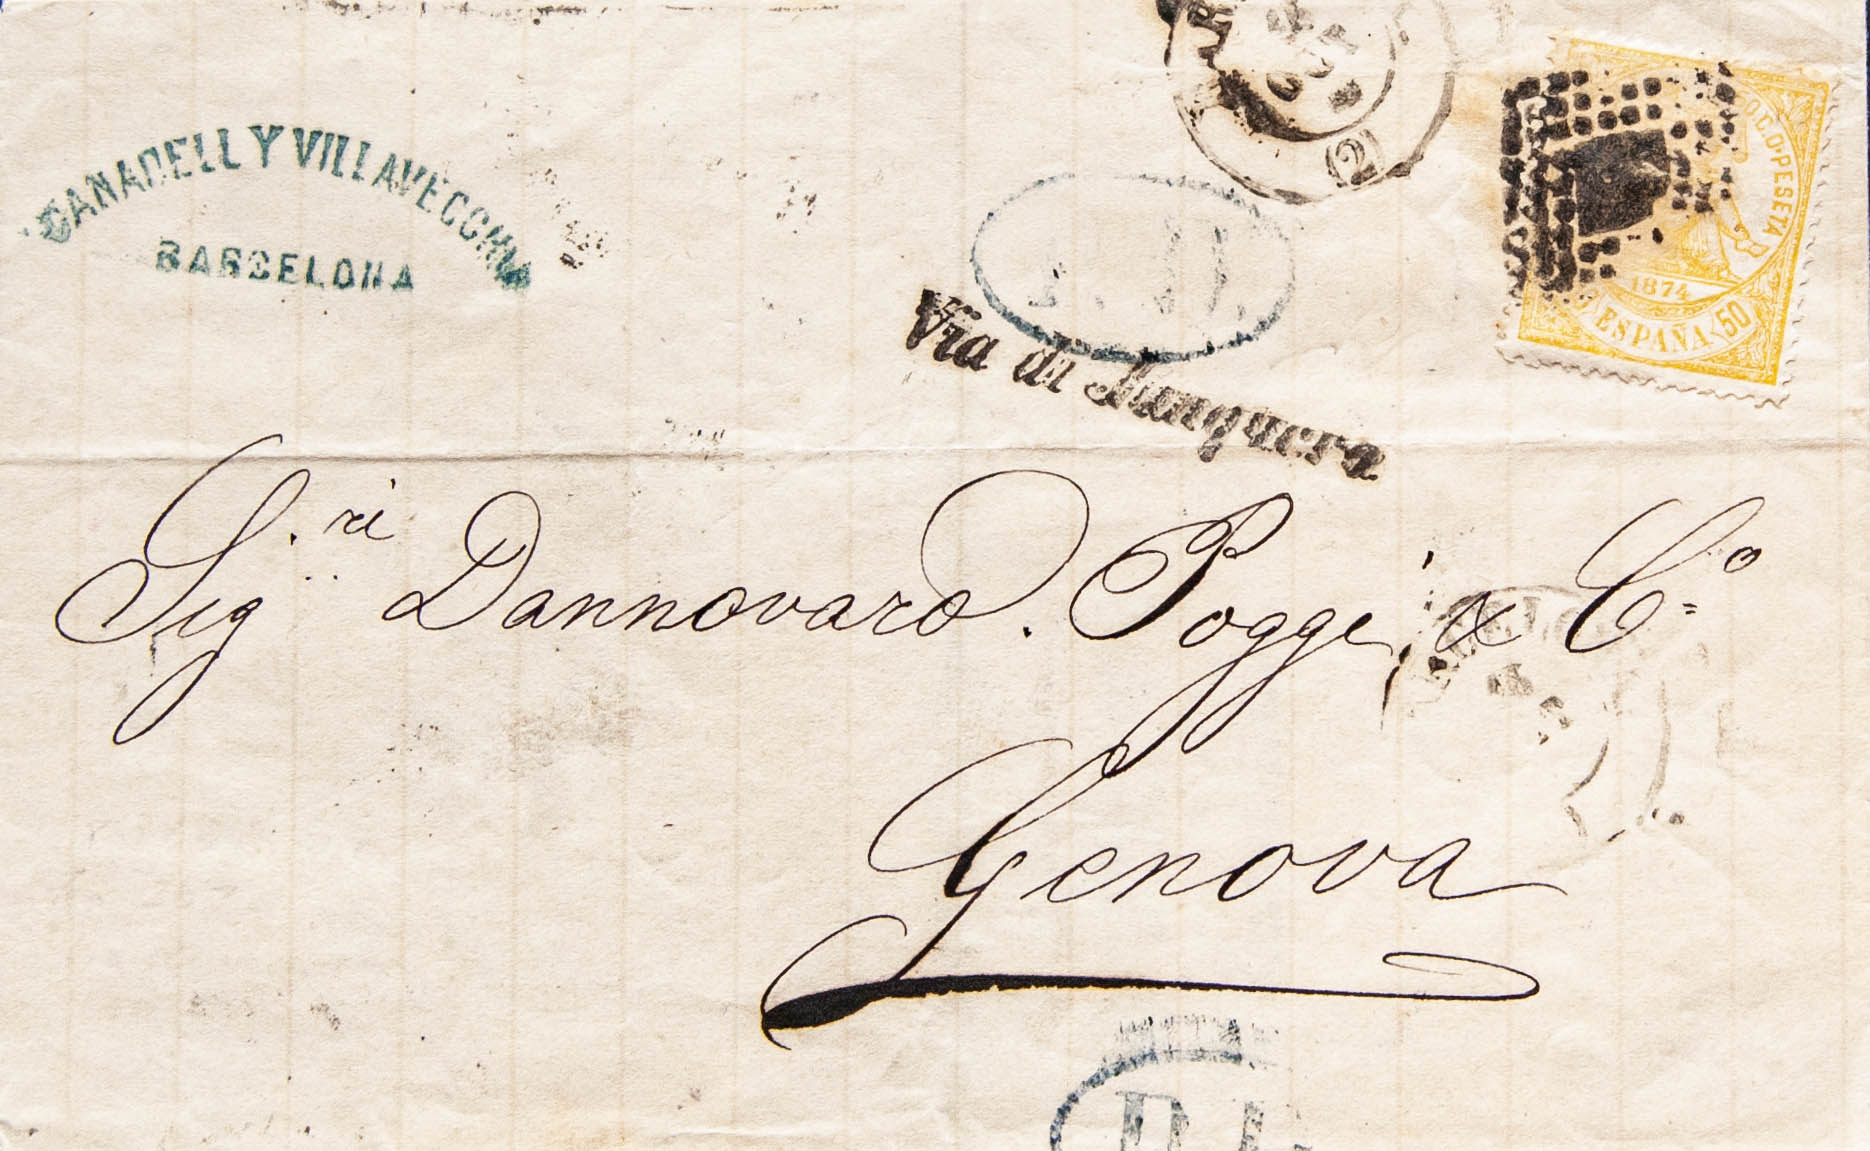 CANADELL Y VILLAVECCHIA
BARCELONA
(2)
50 C. D. PESETA
1874
ESPAÑA 50
Via di Junquera
Sig.ri Dannovaro. Poggi, & Cº
Genova